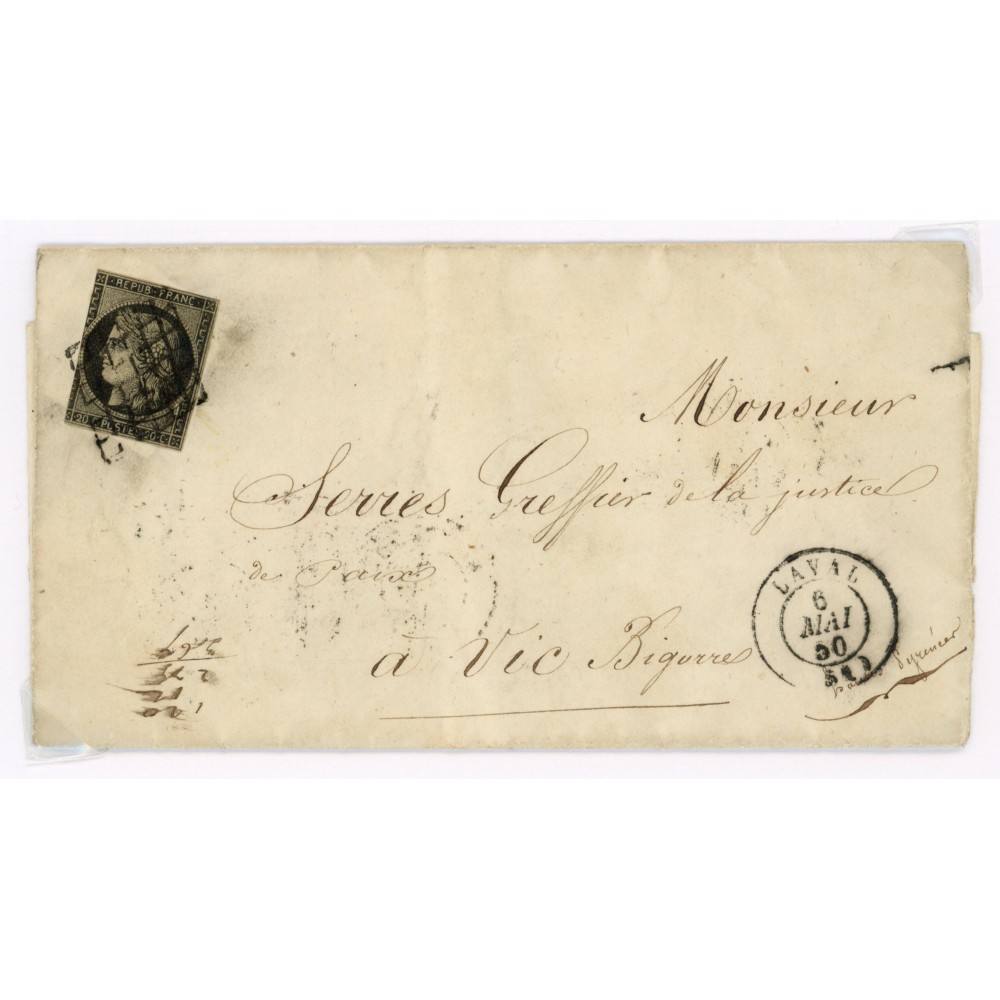 REPUB. FRANC.
20 c POSTES 20 c
Monsieur
Serres Greffier de la justice
de Paix
à Vic Bigorre
Pyrénées
LAVAL
6
MAI
50